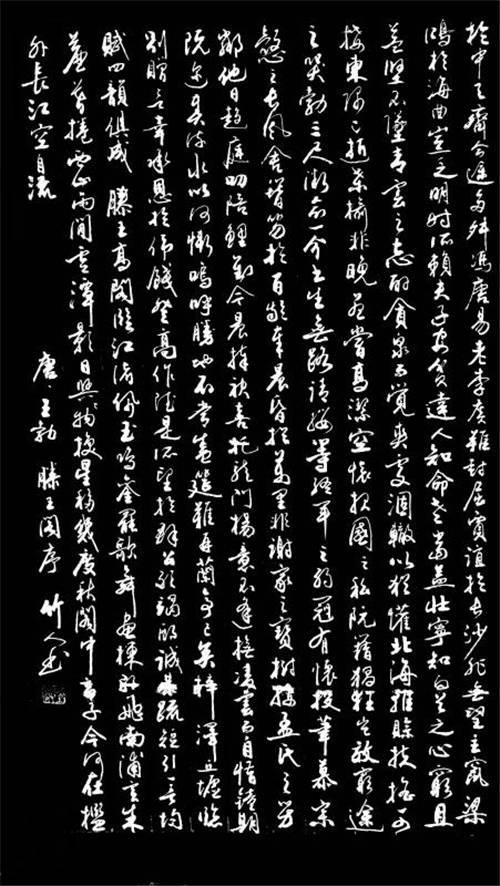 時運不齊命途多舛馮唐易老李廣難封屈賈誼於長沙非無聖主竄梁
鴻於海曲豈乏明時所賴君子安貧達人知命老當益壯寧知白首之心窮且
益堅不墜青雲之志酌貪泉而覺爽處涸轍以猶懽北海雖賒扶搖可
接東隅已逝桑榆非晚孟嘗高潔空懷報國之阮籍猖狂豈效窮途
之哭勃三尺微命一介書生無路請纓等終軍之弱冠有懷投筆慕宗
愨之長風舍簪笏於百齡奉晨昏於萬里非謝家之寶樹接孟氏之芳
鄰他日趨庭叨陪鯉對今晨捧袂喜托龍門楊意不逢撫凌雲而自惜鍾期
既遇奏流水以何慚嗚呼勝地不常盛筵難再蘭亭已矣梓澤丘墟臨
別贈言幸承恩於偉餞登高作賦是所望於群公敢竭鄙誠恭疏短引一言均
賦四韻俱成 滕王高閣臨江渚佩玉鳴鸞罷歌舞畫棟朝飛南浦雲朱
簾暮捲西山雨閒雲潭影日悠悠物換星移幾度秋閣中帝子今何在檻
外長江空自流
唐·王勃 滕王閣序 竹人書